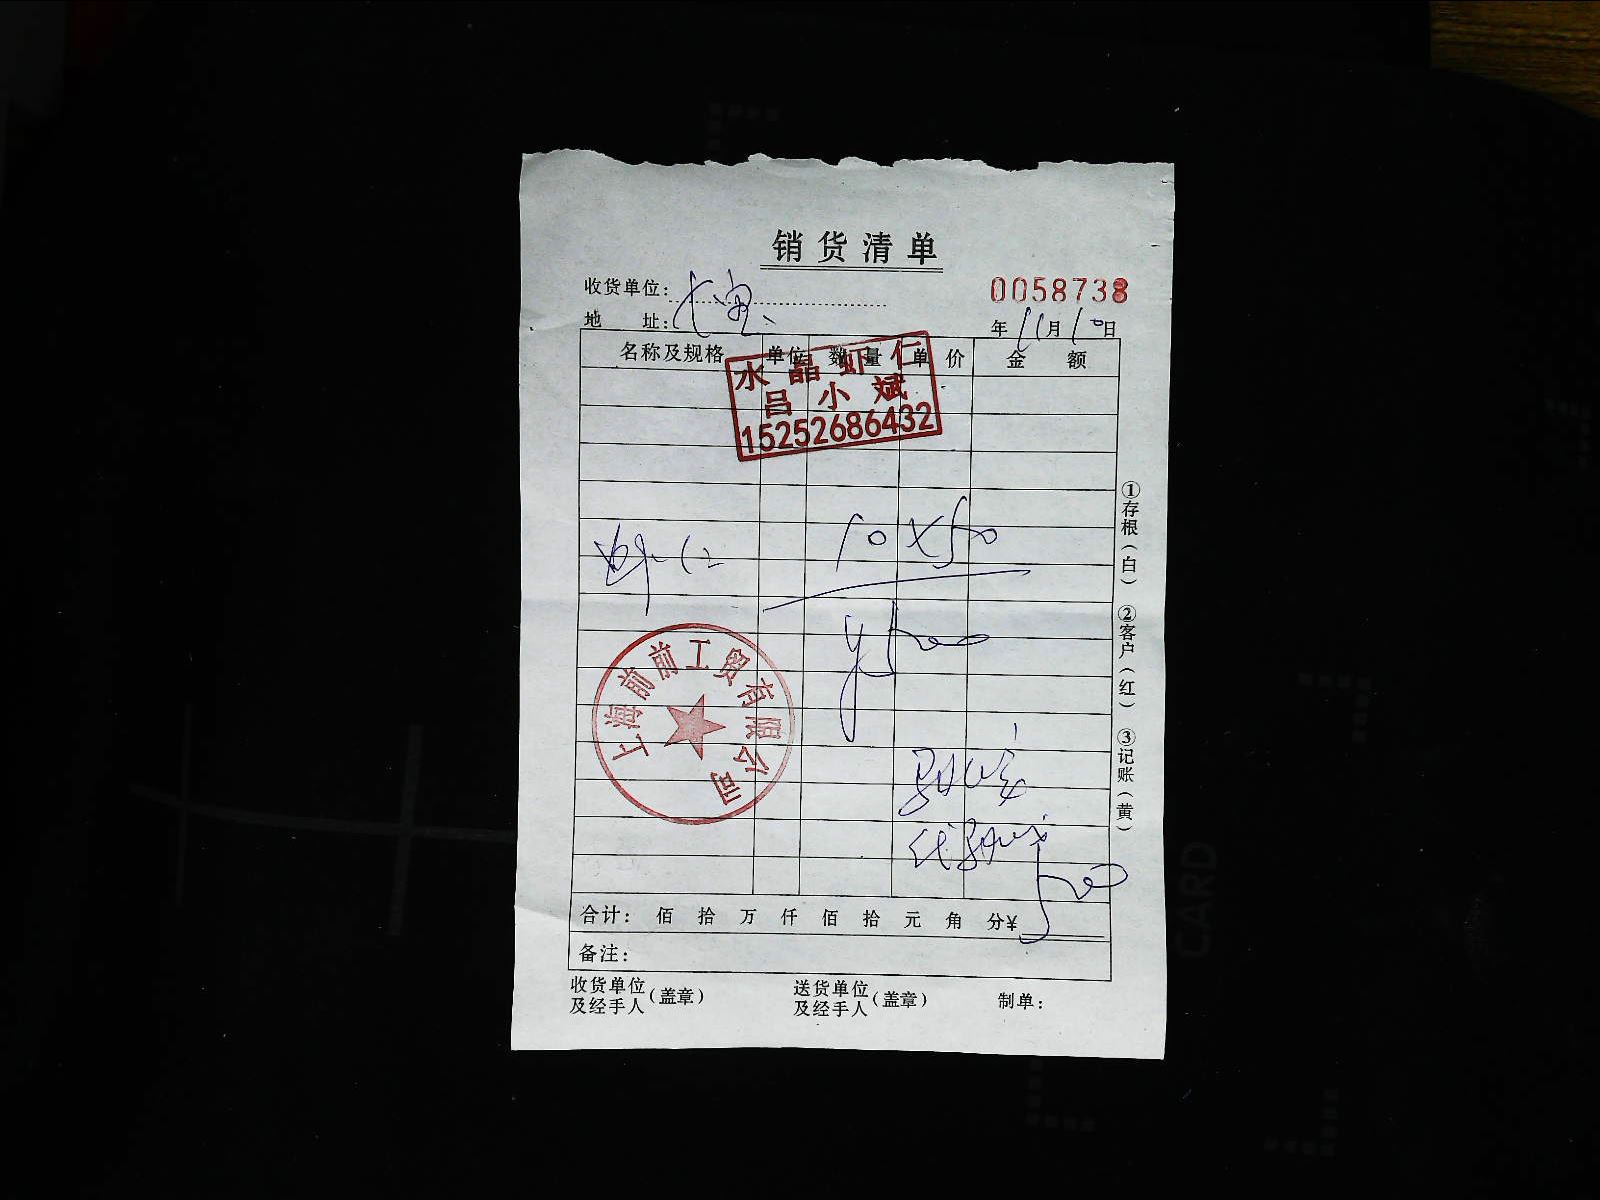 销货清单
收货单位:
0058738
地 址:
年 11 月 10 日
名称及规格 单位 数量 单价 金额
水晶虾仁
吕小斌
15252686432
虾仁 10×50
¥500
上海前前工贸有限公司
500
合计: 佰 拾 万 仟 佰 拾 元 角 分¥
备注:
收货单位及经手人(盖章) 送货单位及经手人(盖章) 制单:
①存根(白) ②客户(红) ③记账(黄)